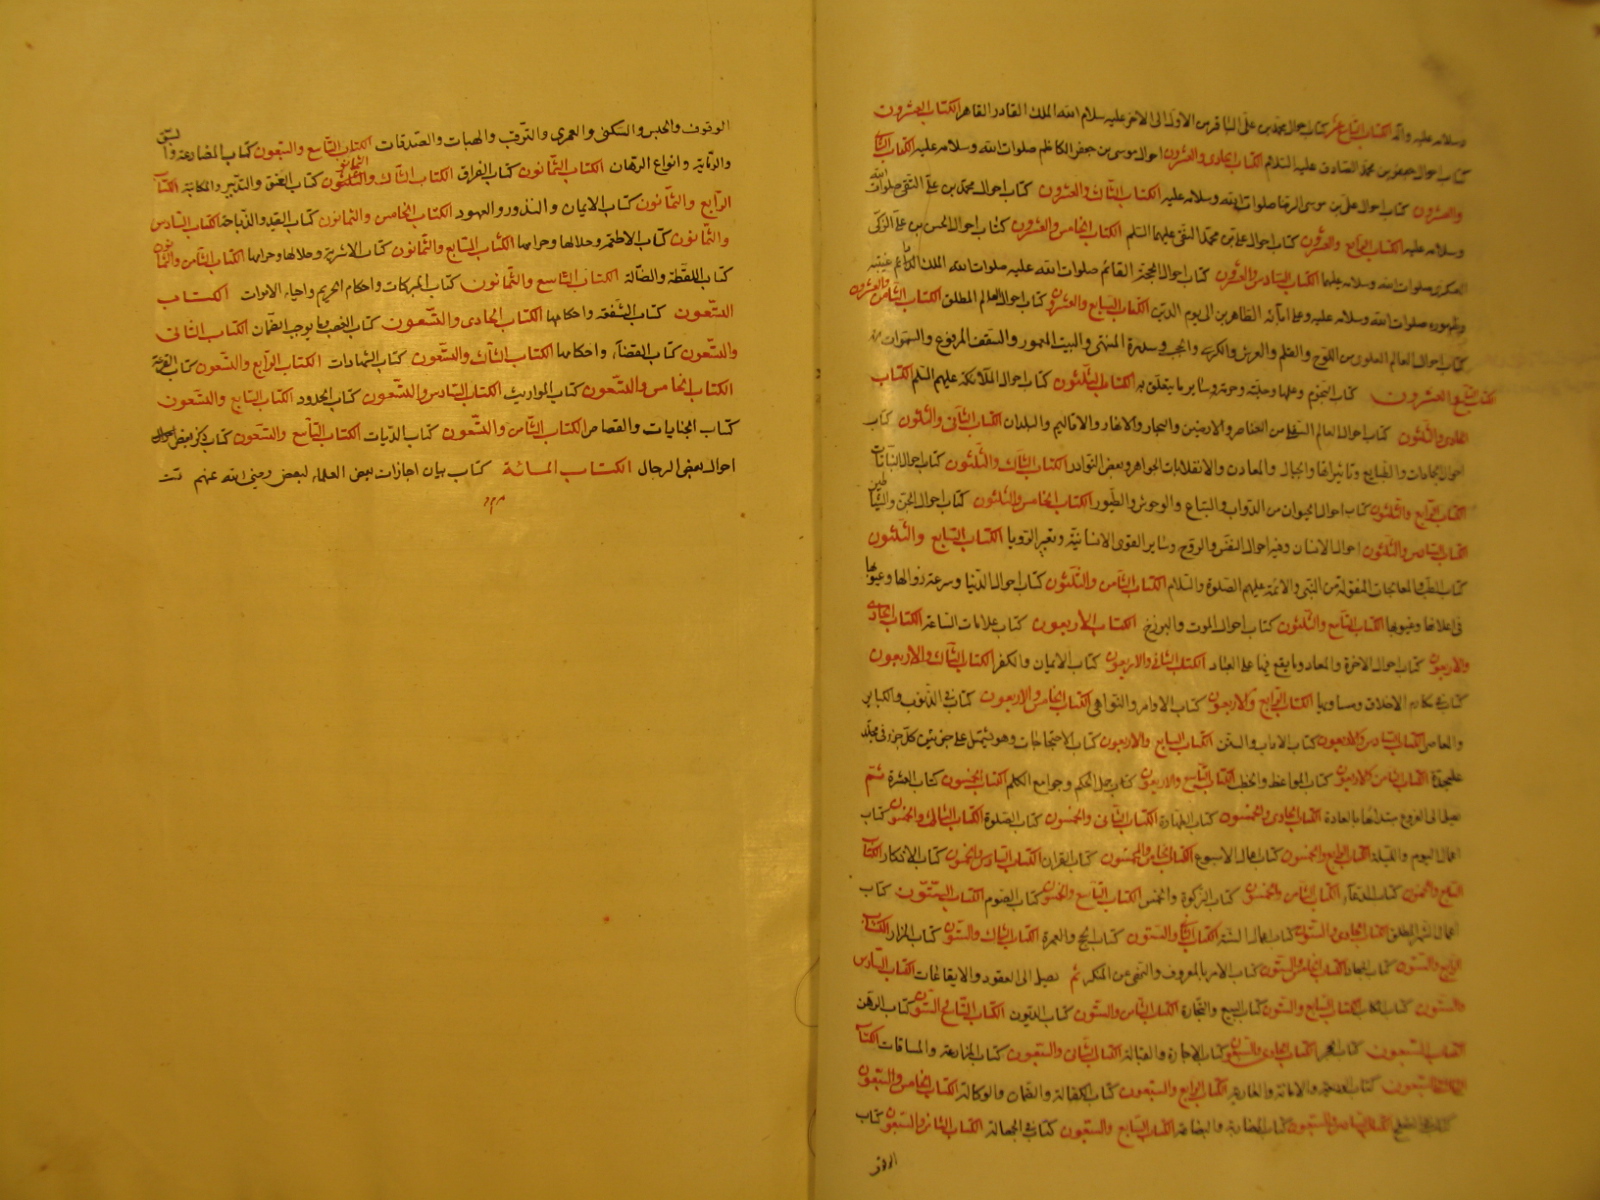 وسلامه عليه وآله الكتاب التاسع عشر كتاب احوال محمد بن على الباقر من الاولى الى الاخر عليه سلام الله الملك القادر القاهر الكتاب العشرون
كتاب احوال جعفر بن محمد الصادق عليه السلام الكتاب الحادى والعشرون احوال موسى بن جعفر الكاظم صلوات الله وسلامه عليه الكتاب الثانى
والعشرون كتاب احوال على بن موسى الرضا صلوات الله وسلامه عليه الكتاب الثالث والعشرون كتاب احوال محمد بن على التقى صلوات الله
وسلامه عليه الكتاب الرابع والعشرون كتاب احوال على بن محمد النقى عليهما السلم الكتاب الخامس والعشرون كتاب احوال الحسن بن على الزكى
العسكرى صلوات الله وسلامه عليهما الكتاب السادس والعشرون كتاب احوال الحجة القائم صلوات الله عليه صلوات الله الملك غيبته
وظهوره صلوات الله وسلامه عليه وعلى آبائه الطاهرين الى يوم الدين الكتاب السابع والعشرون كتاب احوال العالم المطلق الكتاب الثامن والعشرون
كتاب احوال العالم العلوى من اللوح والقلم والعرش والكرسى والحجب وسدرة المنتهى والبيت المعمور والسقف المرفوع والسموات
والعشرون كتاب النجوم وسائر ما يتعلق به الكتاب الثلثون كتاب احوال الملائكة عليهم السلم الكتاب
الحادى والثلثون كتاب احوال العالم السفلى من العناصر والارضين والبحار والانهار والاقاليم والبلدان الكتاب الثانى والثلثون كتاب
احوال الجمادات والطبايع وتاثيراتها والجبال والمعادن والانقلابات الجواهر وبعض النوادر الكتاب الثالث والثلثون كتاب احوال النباتات
الكتاب الرابع والثلثون كتاب احوال الحيوان من الدواب والسباع والوحوش والطيور الكتاب الخامس والثلثون كتاب احوال الجن والشياطين
الكتاب السادس والثلثون احوال الانسان وفيه احوال النفس والروح وساير القوى الانسانية وتعبير الرويا الكتاب السابع والثلثون
كتاب الطب والمعالجات المنقولة من النبى والائمة عليهم الصلوة والسلام الكتاب الثامن والثلثون كتاب احوال الدنيا وسرعة زوالها وعيوبها
الكتاب التاسع والثلثون كتاب احوال الموت والبرزخ الكتاب الاربعون كتاب علامات الساعة الكتاب الحادى
والاربعون كتاب احوال الاخرة والمعاد وما يقع فيها على العباد الكتاب الثانى والاربعون كتاب الايمان والكفر الكتاب الثالث والاربعون
كتاب فى مكارم الاخلاق ومساويها الكتاب الرابع والاربعون كتاب الاوامر والنواهى الكتاب الخامس والاربعون كتاب فى الذنوب والكباير
والمعاصى الكتاب السادس والاربعون كتاب الاداب والسنن الكتاب السابع والاربعون كتاب الاحتجاجات وهو يشتمل على جزئين كل جزء فى مجلد
عليحدة الكتاب الثامن والاربعون كتاب المواعظ والخطب الكتاب التاسع والاربعون كتاب جمل الحكم وجوامع الكلم الكتاب الخمسون كتاب العشرة ثم
نصل الى الفروع مبتدئا بالعبادة الكتاب الحادى والخمسون كتاب الطهارة الكتاب الثانى والخمسون كتاب الصلوة الكتاب الثالث والخمسون كتاب
اعمال اليوم والليلة الكتاب الرابع والخمسون كتاب اعمال الاسبوع الكتاب الخامس والخمسون كتاب القران الكتاب السادس والخمسون كتاب الاذكار الكتاب
السابع والخمسون كتاب الدعاء الكتاب الثامن والخمسون كتاب الزكوة والخمس الكتاب التاسع والخمسون كتاب الصوم الكتاب الستون كتاب
اعمال شهر المطلق الكتاب الحادى والستون كتاب اعمال السنة الكتاب الثانى والستون كتاب الحج والعمرة الكتاب الثالث والستون كتاب المزار الكتاب
الرابع والستون كتاب الجهاد الكتاب الخامس والستون كتاب الامر بالمعروف والنهى عن المنكر ثم نصل الى العقود والايقاعات الكتاب السادس
والستون كتاب المكاسب الكتاب السابع والستون كتاب البيع والتجارة الكتاب الثامن والستون كتاب الديون الكتاب التاسع والستون كتاب الرهن
الكتاب السبعون كتاب الحجر الكتاب الحادى والسبعون كتاب الاجارة والقبالة الكتاب الثانى والسبعون كتاب المزارعة والمساقات الكتاب
الثالث والسبعون كتاب الوديعة والامانة والعارية الكتاب الرابع والسبعون كتاب الكفالة والضمان والوكالة الكتاب الخامس والسبعون
كتاب الصلح الكتاب السادس والسبعون كتاب المضاربة والبضاعة الكتاب السابع والسبعون كتاب فى الجعالة الكتاب الثامن والسبعون كتاب
الوقوف
الوقوف والحبس والسكنى والعمرى والرقبى والهبات والصدقات الكتاب التاسع والسبعون كتاب المضارعة والسبق
والرماية وانواع الرهان الكتاب الثمانون كتاب الفراق الكتاب الثالث والثلثون الثمانون كتاب العتق والتدبير والمكاتبة الكتاب
الرابع والثمانون كتاب الايمان والنذور والعهود الكتاب الخامس والثمانون كتاب الصيد والذباحة الكتاب السادس
والثمانون كتاب الاطعمة وحلالها وحرامها الكتاب السابع والثمانون كتاب الاشربة وحلالها وحرامها الكتاب الثامن والثمانون
كتاب اللقطة والضالة الكتاب التاسع والثمانون كتاب المشتركات واحكام الحريم واحياء الاموات الكتاب
التسعون كتاب الشفعة واحكامها الكتاب الحادى والتسعون كتاب الغصب وما يوجب الضمان الكتاب الثانى
والتسعون كتاب القضاء واحكامها الكتاب الثالث والتسعون كتاب الشهادات الكتاب الرابع والتسعون كتاب القرعة
الكتاب الخامس والتسعون كتاب المواريث الكتاب السادس والتسعون كتاب الحدود الكتاب السابع والتسعون
كتاب الجنايات والقصاص الكتاب الثامن والتسعون كتاب الديات الكتاب التاسع والتسعون كتاب ذكر بعض احوال
احوال بعض الرجال الكتاب المائة كتاب بيان اجازات بعض العلماء لبعض رضى الله عنهم تمت